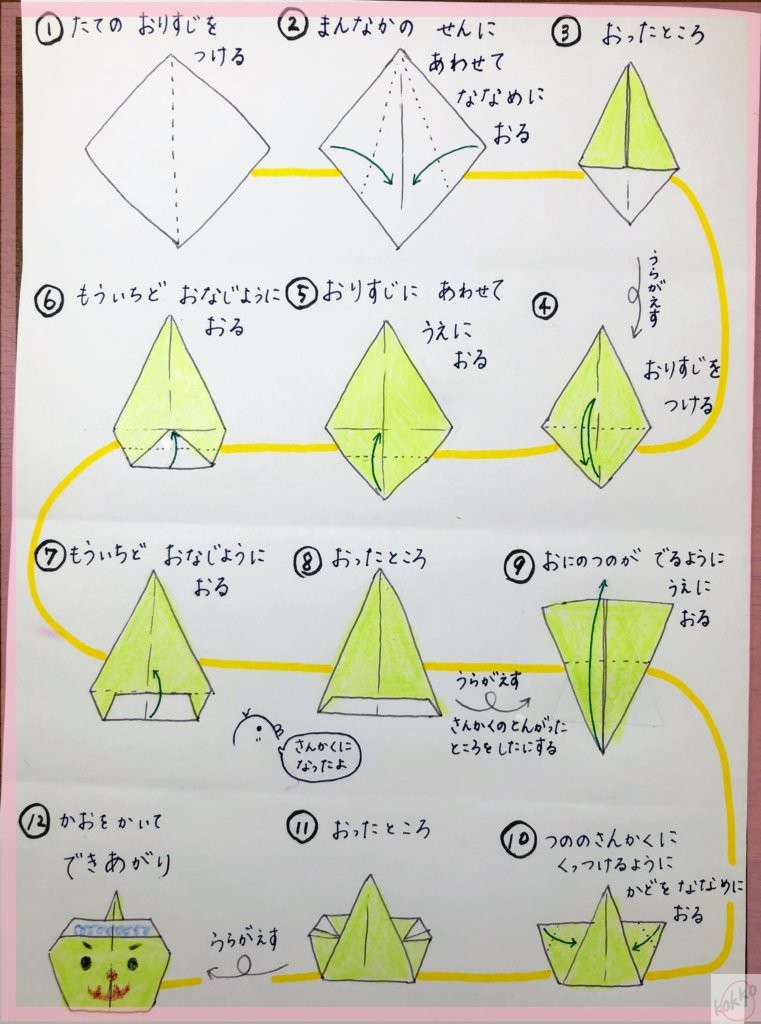 ① たての おりすじを
つける
② まんなかの せんに
あわせて
ななめに
おる
③ おったところ
うらがえす
④ おりすじを
つける
⑤ おりすじに あわせて
うえに
おる
⑥ もういちど おなじように
おる
⑦ もういちど おなじように
おる
⑧ おったところ
さんかくに
なったよ
うらがえす
さんかくのとんがった
ところをしたにする
⑨ おにのつのが でるように
うえに
おる
⑩ つののさんかくに
くっつけるように
かどを ななめに
おる
⑪ おったところ
うらがえす
⑫ かおをかいて
できあがり
kokko